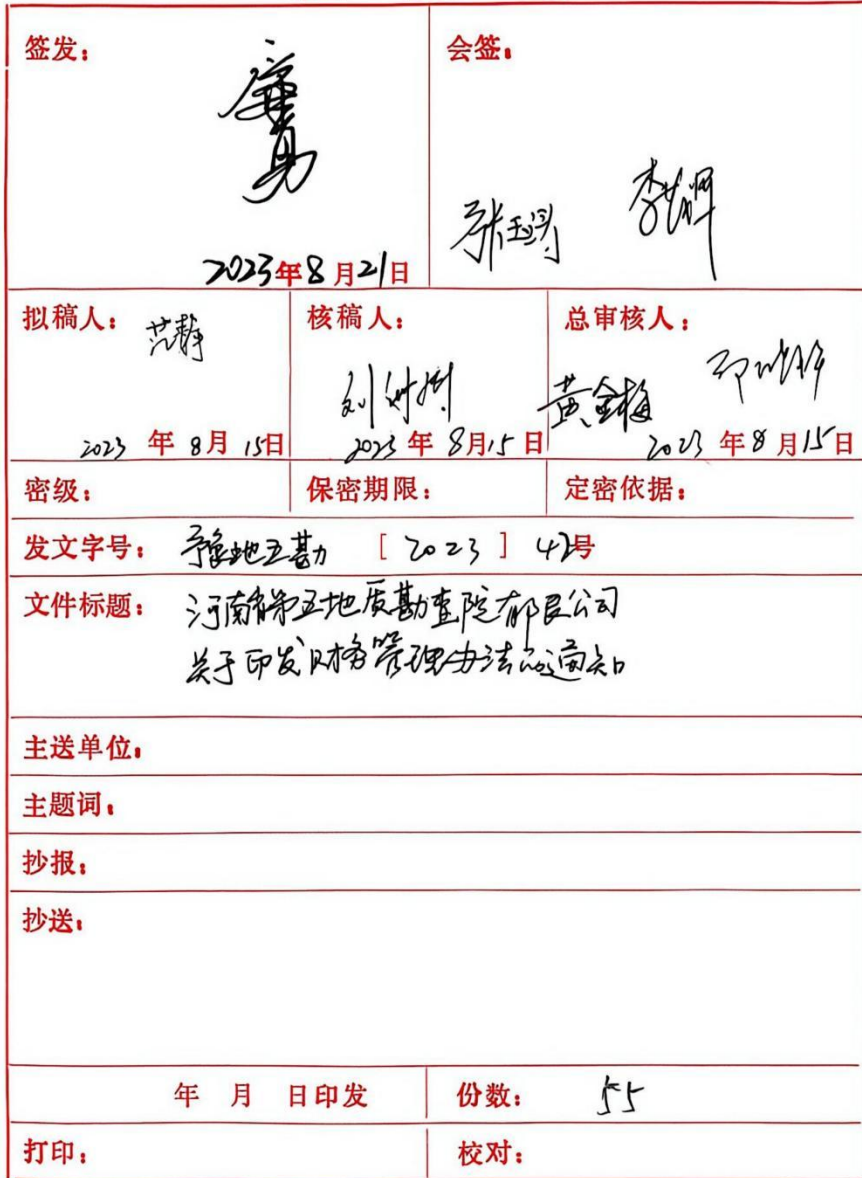 签发：
会签：
2023年8月21日
拟稿人：
范静
核稿人：
总审核人：
黄金梅
2023 年 8月 15日
2023年 8月15日
2023 年8月15日
密级：
保密期限：
定密依据：
发文字号： 豫地五勘 [2023] 42号
文件标题： 河南省第五地质勘查院有限公司
关于印发财务管理办法的通知
主送单位：
主题词：
抄报：
抄送：
年 月 日印发
份数： 55
打印：
校对：